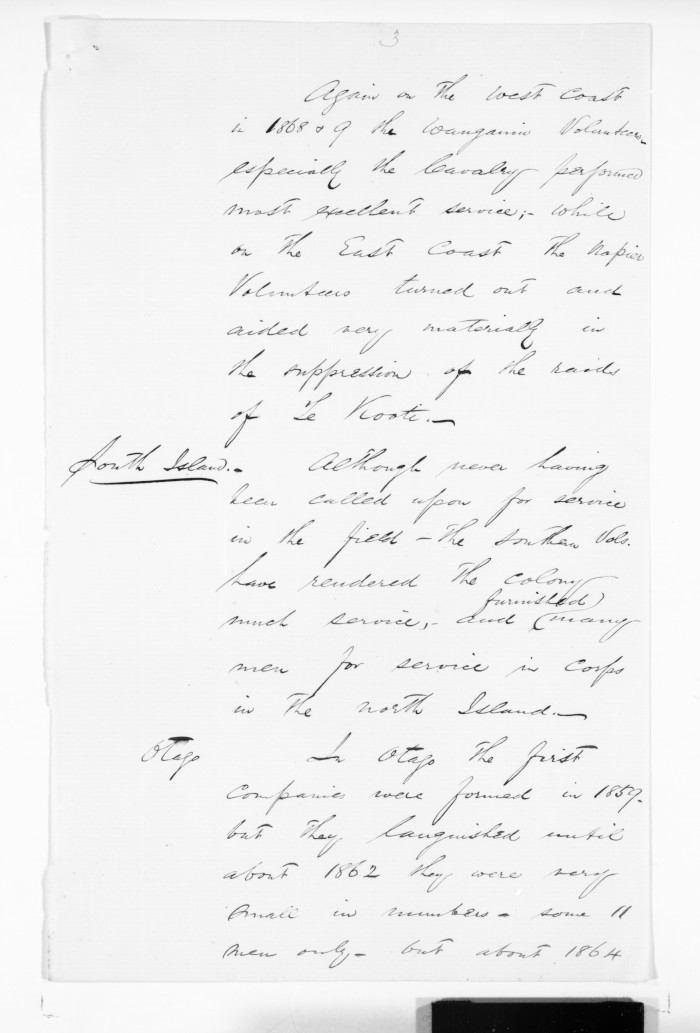 3
Again on the West Coast
in 1868 & 9 the Wanganui Volunteers-
especially the Cavalry performed
most excellent service;- while
on the East Coast the Napier
Volunteers turned out and
aided very materially in
the suppression of the raids
of Te Kooti.-
South Island.- Although never having
been called upon for service
in the field - the southern Vols.
have rendered the colony
furnished
much service,- and (many
men for service in corps
in the north Island.-
Otago In Otago the first
companies were formed in 1859-
but they languished until
about 1862 they were very
small in numbers - some 11
men only - but about 1864